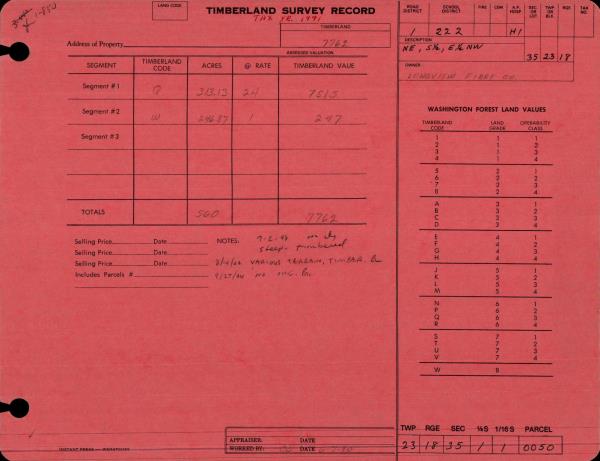 LAND CODE
TIMBERLAND SURVEY RECORD
TAX YR. 1991
TIMBERLAND
Address of Property 7762
ASSESSED VALUATION
SEGMENT TIMBERLAND CODE ACRES @ RATE TIMBERLAND VAUE
Segment #1 Q 313.13 24 7515
Segment #2 W 246.87 1 247
Segment #3
TOTALS 560 7762
Selling Price Date NOTES:
Selling Price Date
Selling Price Date VARIOUS TERRAIN, TIMBER.
Includes Parcels #
INSTANT PRESS
APPRAISER: DATE
WORKED BY: DATE
ROAD DISTRICT SCHOOL DISTRICT FIRE CEM A.P. HOSP SEC OR LOT TWP OR BLK RGE TAX
1 222 H1
DESCRIPTION
NE, S½, E½ NW
35 23 18
OWNER
LONGVIEW FIBRE CO.
WASHINGTON FOREST LAND VALUES
TIMBERLAND CODE LAND GRADE OPERABILITY CLASS
1 1 1
2 1 2
3 1 3
4 1 4
5 2 1
6 2 2
7 2 3
8 2 4
A 3 1
B 3 2
C 3 3
D 3 4
E 4 1
F 4 2
G 4 3
H 4 4
J 5 1
K 5 2
L 5 3
M 5 4
N 6 1
P 6 2
Q 6 3
R 6 4
S 7 1
T 7 2
U 7 3
V 7 4
W 8
TWP RGE SEC ¼S 1/16S PARCEL
23 18 35 1 1 0050